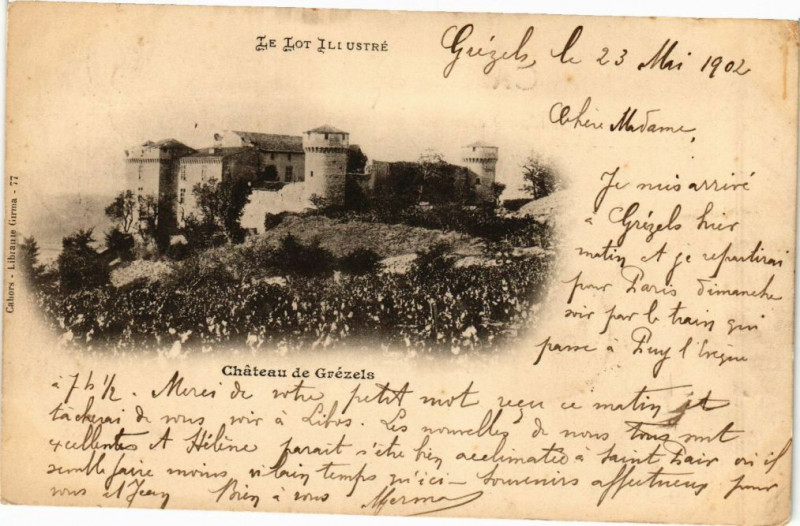 LE LOT ILLUSTRÉ
Grézels, le 23 Mai 1902
Chère Madame,
Je suis arrivé
à Grézels hier
matin et je repartirai
pour Paris dimanche
soir par le train qui
passe à Puy l'Evêque
Cahors - Librairie Girma - 77
Château de Grézels
à 7h ½. Merci de votre petit mot reçu ce matin je
tâcherai de vous voir à Libos. Les nouvelles de nous tous sont
excellentes et Hélène parait s'être bien acclimatée à Saint Clair où il
semble faire moins vilain temps qu'ici - Souvenirs affectueux pour
vous et Jean Bien à vous